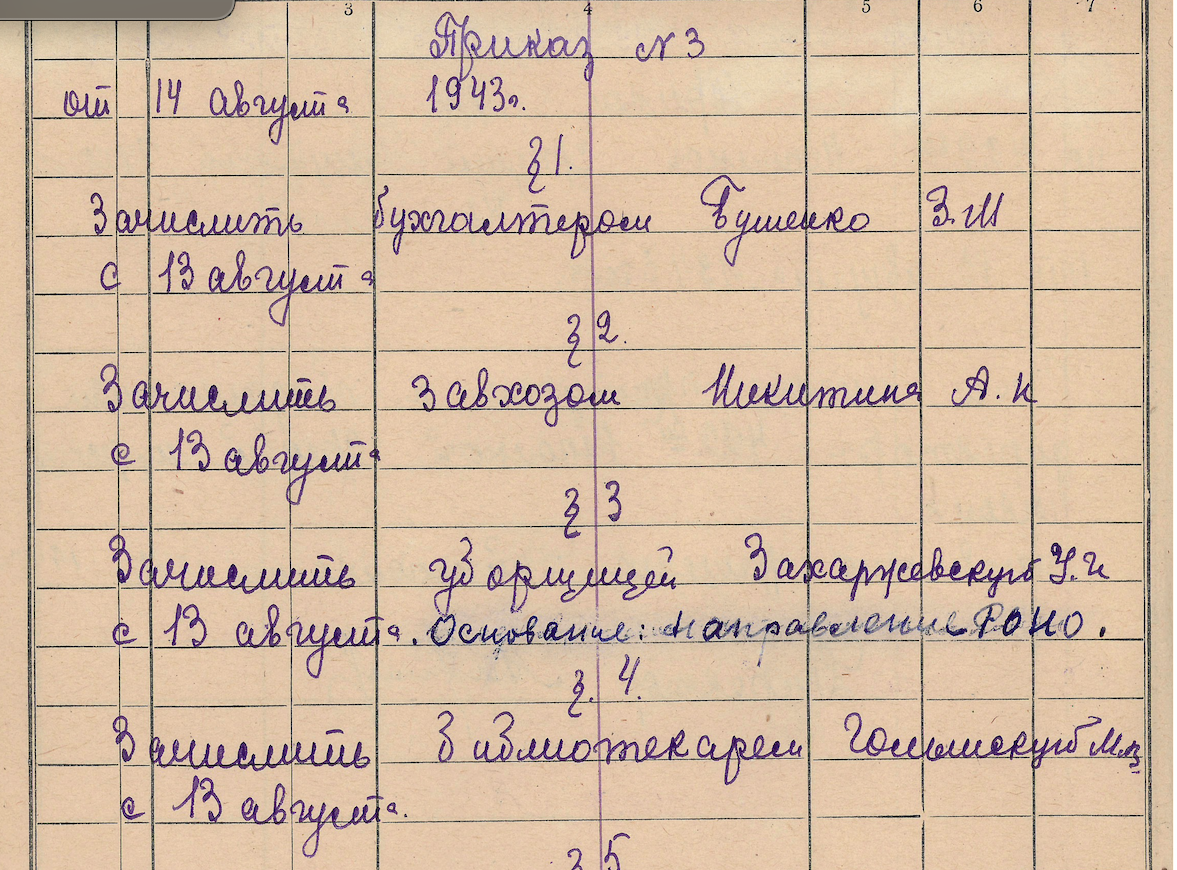 3 4 5 6 7
Приказ N 3
от 14 августа 1943г.
§ 1.
Зачислить бухгалтером Бушенко З.М
с 13 августа
§ 2.
Зачислить завхозом Никитина А. И
с 13 августа
§ 3
Зачислить уборщицей Захаржевскую У.И
с 13 августа. Основание: направление РОНО.
§. 4.
Зачислить библиотекарем
с 13 августа.
§ 5